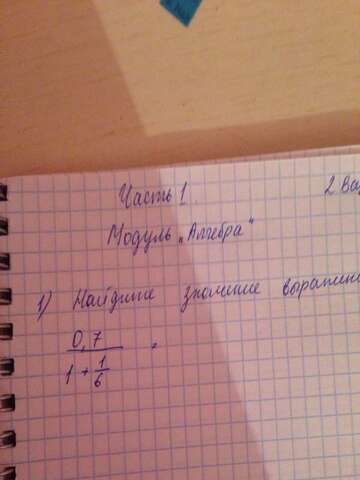 Часть 1.
2 Ва
Модуль „Алгебра"
1) Найдите значение выражени
0,7
1 + 1/6